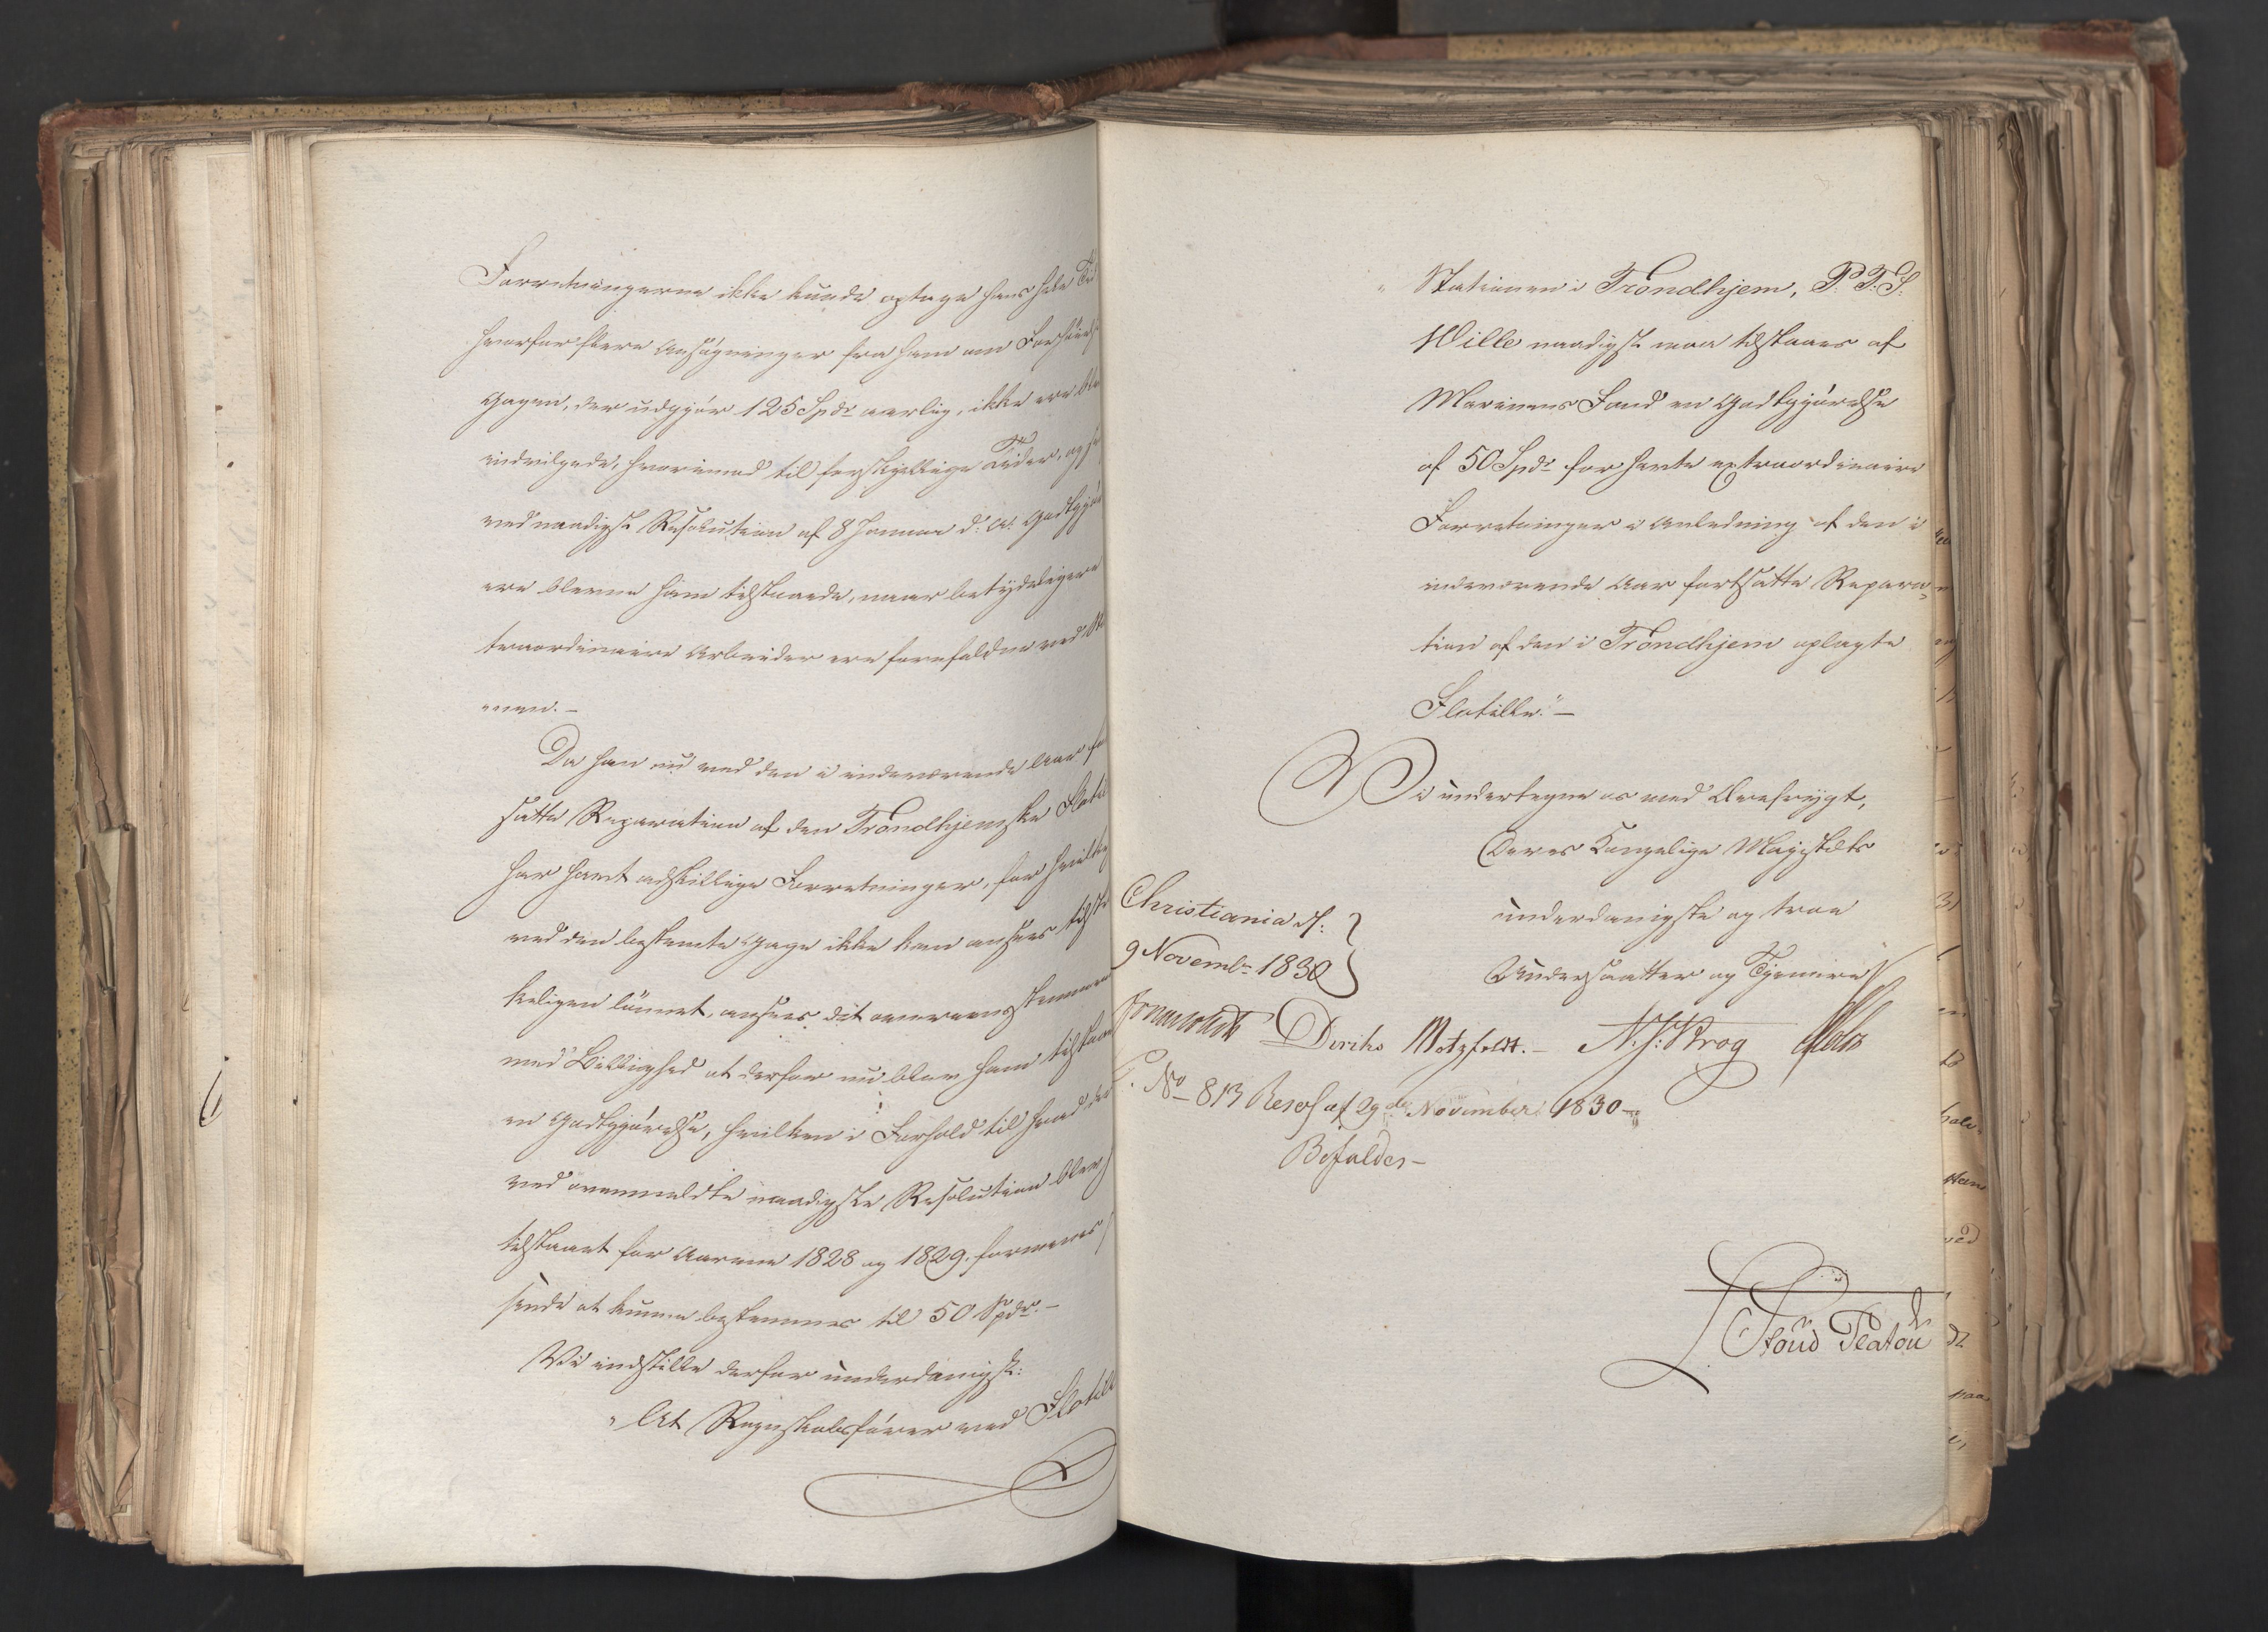 Forretningerne ikke kunde optage hans hele Ti
hvorfor flere Ansøgninger fra ham om Forhøiels
Gagen, der udgjør 125 Spdr aarlig, ikke ere ble
indvilgede, hvorimod til forskjellige Tider, og
ved naadigst Resolution af 8 Januar d: A: Godtgjø
ere blevne ham tilstaaede, naar betydeligere
traordinaire Arbeider ere forefaldne ved
onen. –
Da han nu ved den i indeværende Aar
satte Reparation af den Trondhjemske Flotil
har havt adskillige Forretninger, for hvilke
ved den bestemte Gage ikke kan ansees tilst
keligen lønnet, ansees det overeensstemmen
med Billighed at derfor nu blev ham tilstaae
en Godtgjørelse, hvilken i Forhold til hvad der
ved ovenmeldte naadigste Resolution blev
tilstaaet for Aarene 1828 og 1829. formenes
sende at kunne bestemmes til 50 Spdr. –
Vi indstille derfor underdanigst:
„At Regnskabsfører ved Flotill
„Stationen i Trondhjem, P. T. S.
Wille naadigst maa tilstaaes af
Marinens Fond en Godtgjørelse
af 50 Spdr for havte extraordinaire
Forretninger i Anledning af den i
indeværende Aar fortsatte Repara-
tion af den i Trondhjem oplagte
Flotille." –
Vi undertegne os med Ærefrygt,
Deres Kongelige Majestæts
underdanigste og troe
Undersaatter og Tjenere
Christiania d:
9 Novembr 1830
Diriks Motzfeldt. – N. J. Krog
No 813 Resol af 29de November 1830 –
Bifaldes –
Stoud Platou